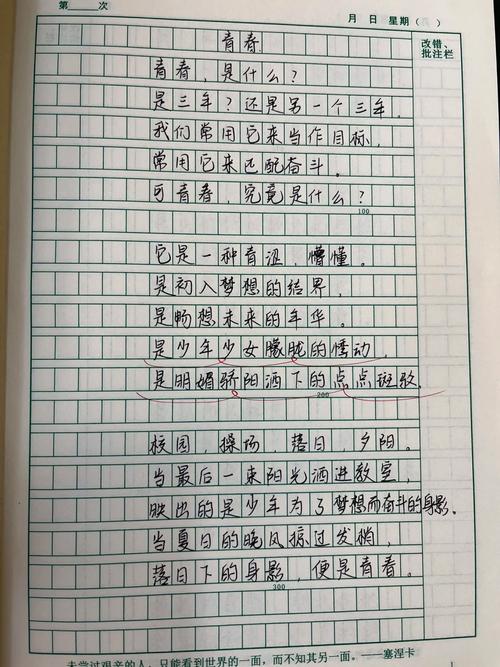 第 次
月 日 星期( )
改错、
批注栏
青春
青春,是什么?
是三年?还是另一个三年,
我们常用它来当作目标,
常用它来匹配奋斗。
可青春,究竟是什么?
100
它是一种青涩,懵懂。
是初入梦想的结界,
是畅想未来的年华。
是少年少女朦胧的悸动,
是明媚骄阳洒下的点点斑驳,
200
校园,操场,落日,夕阳。
当最后一束阳光洒进教室,
映出的是少年为了梦想而奋斗的身影、
当夏日的晚风掠过发梢,
落日下的身影,便是青春。
300
未尝过艰辛的人,只能看到世界的一面,而不知其另一面。——塞涅卡